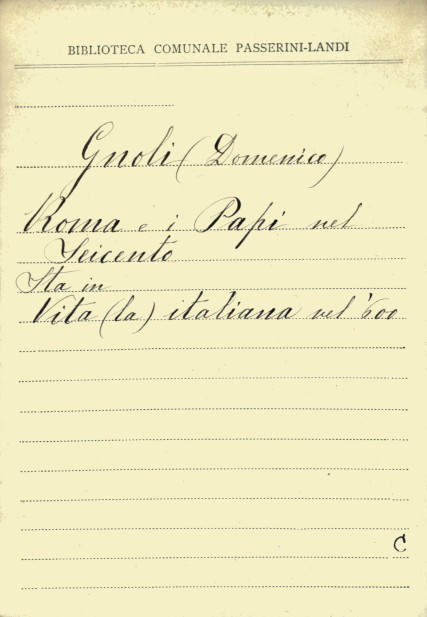 BIBLIOTECA COMUNALE PASSERINI-LANDI
Gnoli (Domenico)
Roma e i Papi nel
Seicento
Sta in
Vita (la) italiana nel '600
C